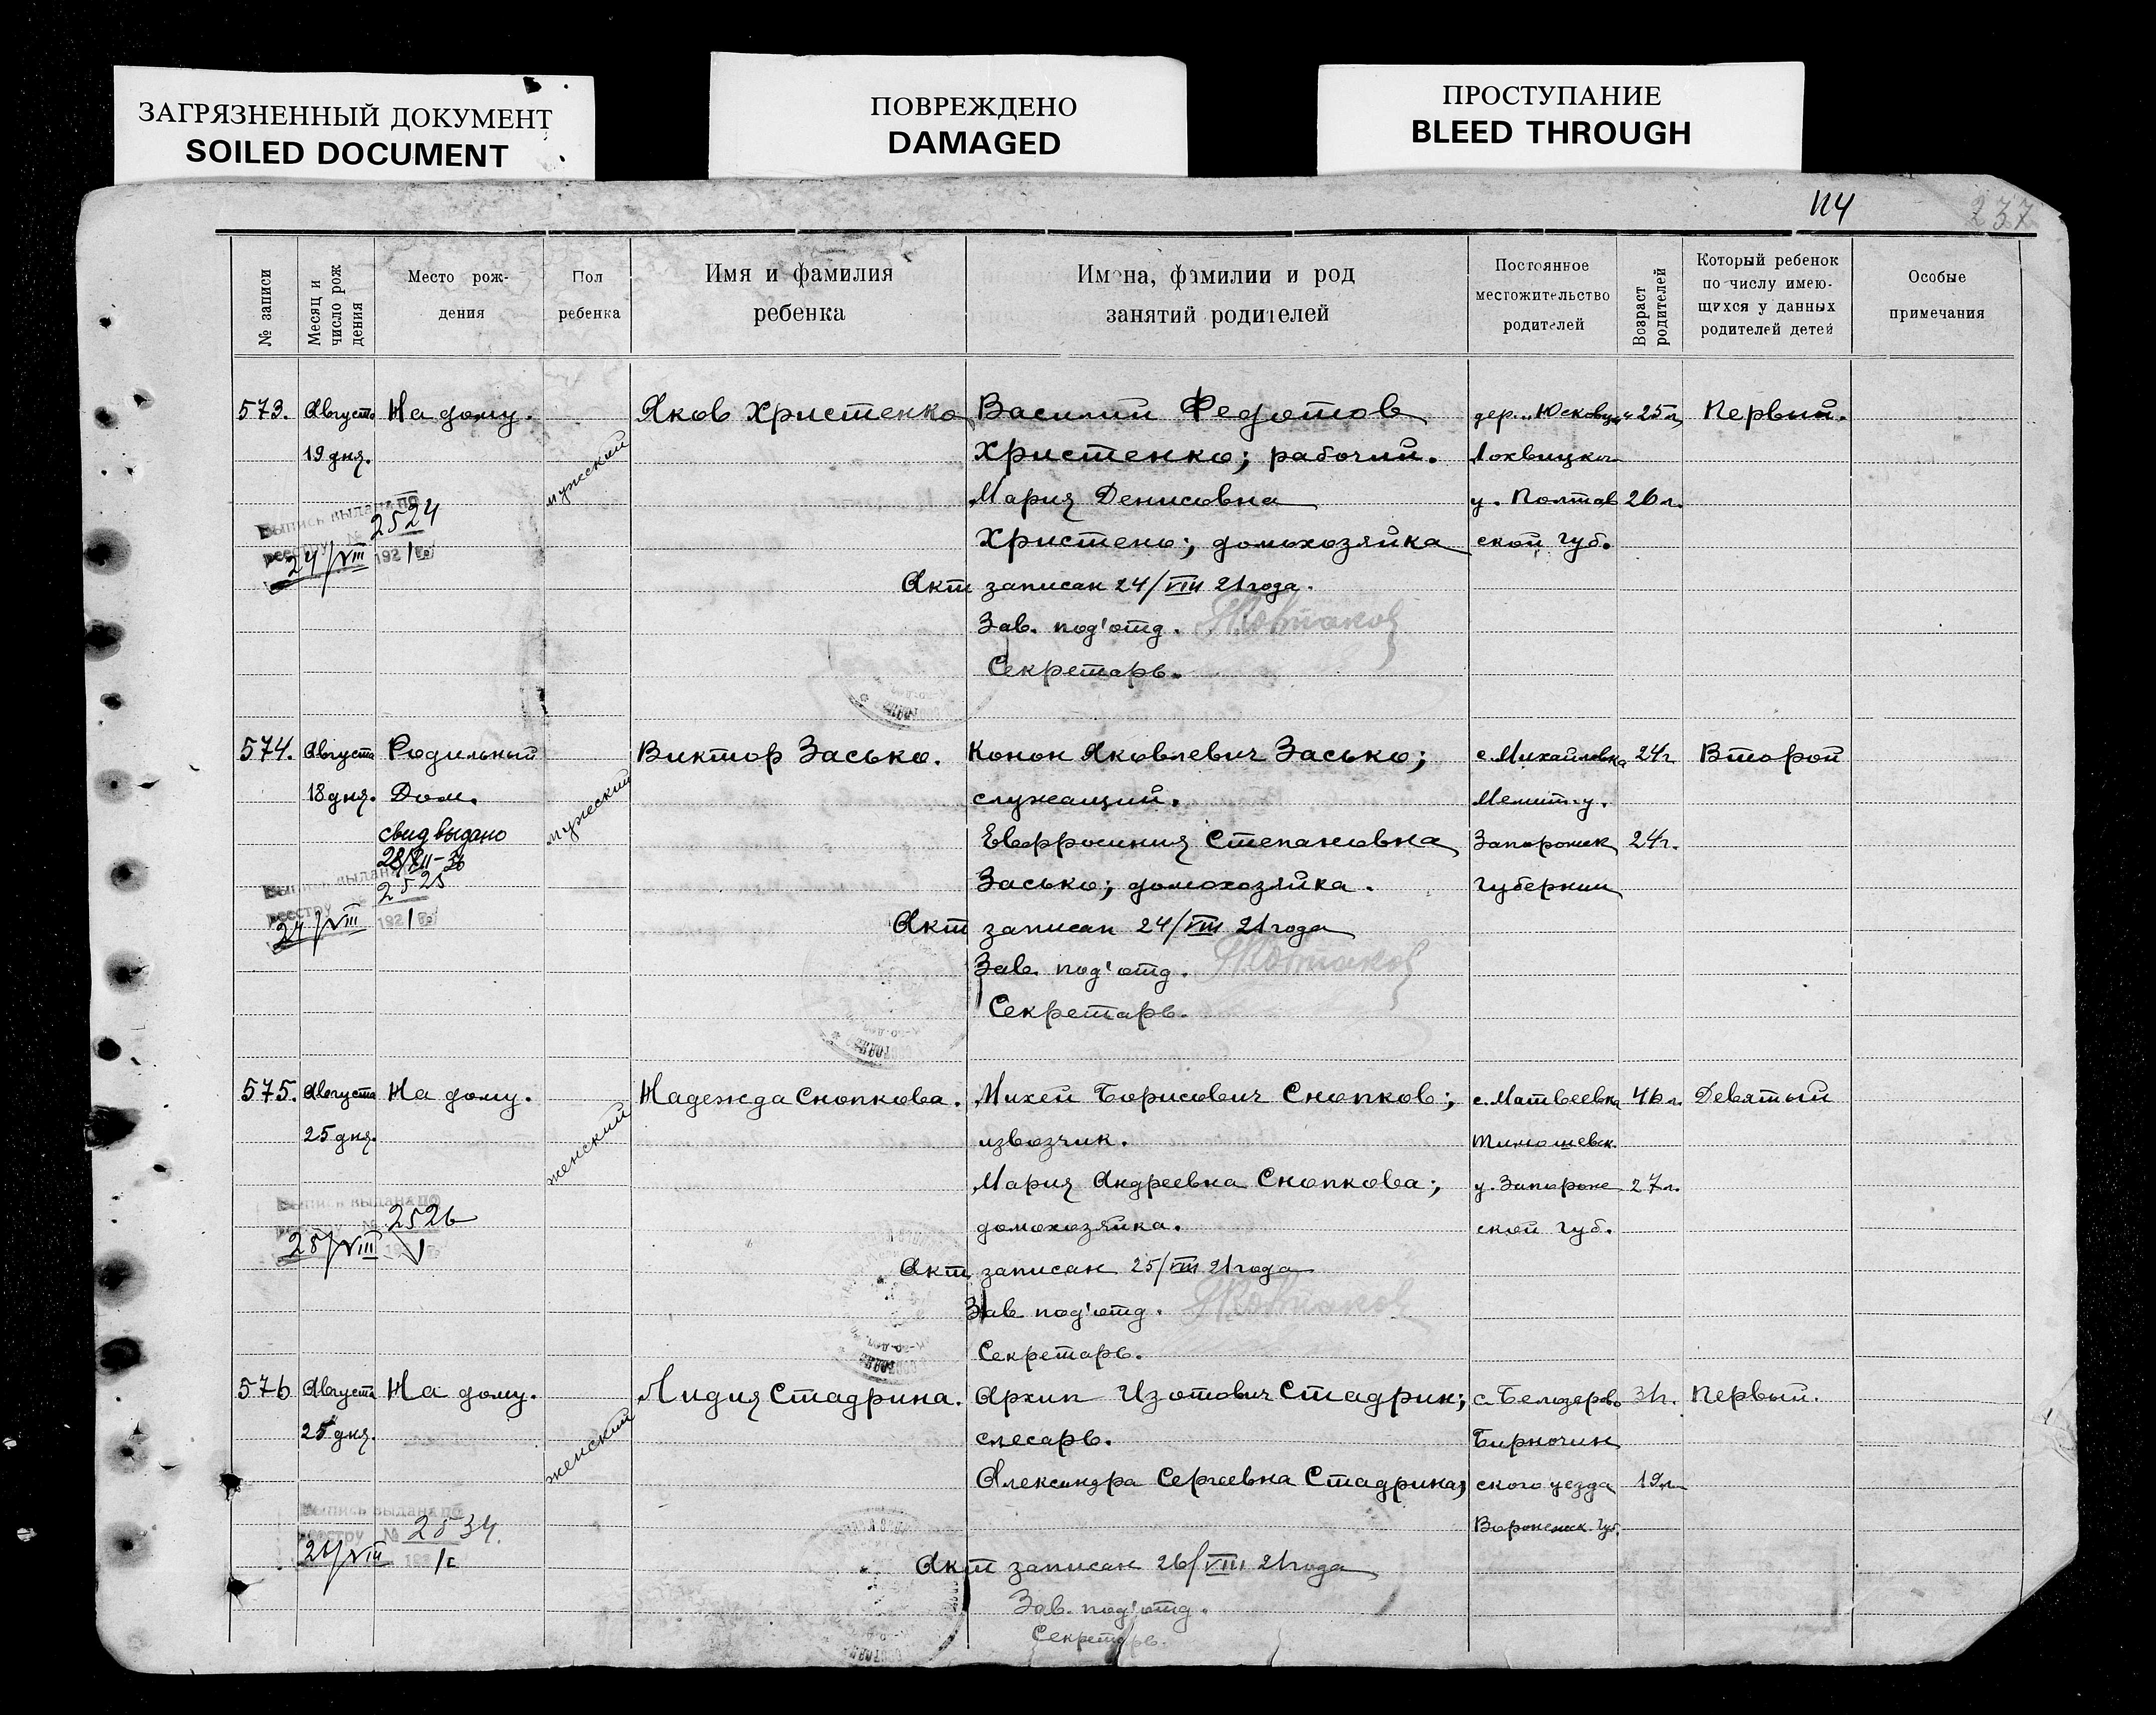 ЗАГРЯЗНЕННЫЙ ДОКУМЕНТ
SOILED DOCUMENT
ПОВРЕЖДЕНО
DAMAGED
ПРОСТУПАНИЕ
BLEED THROUGH
114
237
№ записи
Месяц и число рож дения
Место рож-
дения
Пол
ребенка
Имя и фамилия
ребенка
Имена, фамилии и род
занятий родителей
Постоянное
местожительство
родителей
Возраст родителей
Который ребенок
по числу имею-
щихся у данных
родителей детей
Особые
примечания
573. Августа На дому. мужский Яков Христенко Василий Федотов дер. 25 л. Первый.
19 дня. Христенко; рабочий. Лохвицка
Мария Денисовна у. Полтав 26 л.
Выпись выдана по
реестру № 2524
24/VIII 1921 г.
Христенко; домохозяйка ской губ.
Акт записан 24/VIII 21 года.
Зав. под'отд.
Секретарь.
574. Августа Родильный мужеский Виктор Засько. Конон Яковлевич Засько; с. Михайловка 24 г. Второй
18 дня. Дом. служащий. Мелит. у.
свид выдано Евфросиния Степановна Запорожск 24 г.
Выпись выдана по
реестру 2525
24/VIII 1921 г.
Засько; домохозяйка. губернии
Акт записан 24/VIII 21 года
Зав. под'отд.
Секретарь.
575. Августа На дому. женский Надежда Снопкова. Михей Борисович Снопков; с. Матвеевка 46 л. Девятый
25 дня. извозчик.
Мария Андреевна Снопкова; у. Запорож 27 л.
Выпись выдана по
2526
25/VIII 1
домохозяйка. ской губ.
Акт записан 25/VIII 21 года
Зав. под'отд.
Секретарь.
576 Августа На дому. женский Лидия Стадрина. Архип Изотович Стадрин; с. Белозерово 31 г. Первый.
25 дня. слесарь. Бирючин
Александра Сергеевна Стадрина; ского уезда 19 л.
Воронежск. губ.
Выпись выдана по
реестру № 2534.
26/VIII 1921 г.
Акт записан 26/VIII 21 года
Зав. под'отд.
Секретарь.